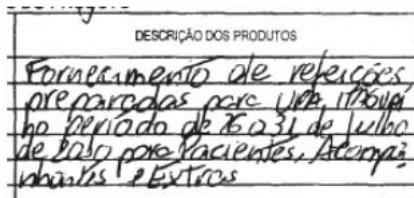 DESCRIÇÃO DOS PRODUTOS
Fornecimento de refeições
preparadas para UPA
no período de 16 a 31 de Julho
de 2020 para Pacientes, Acompa-
nhantes e Extras